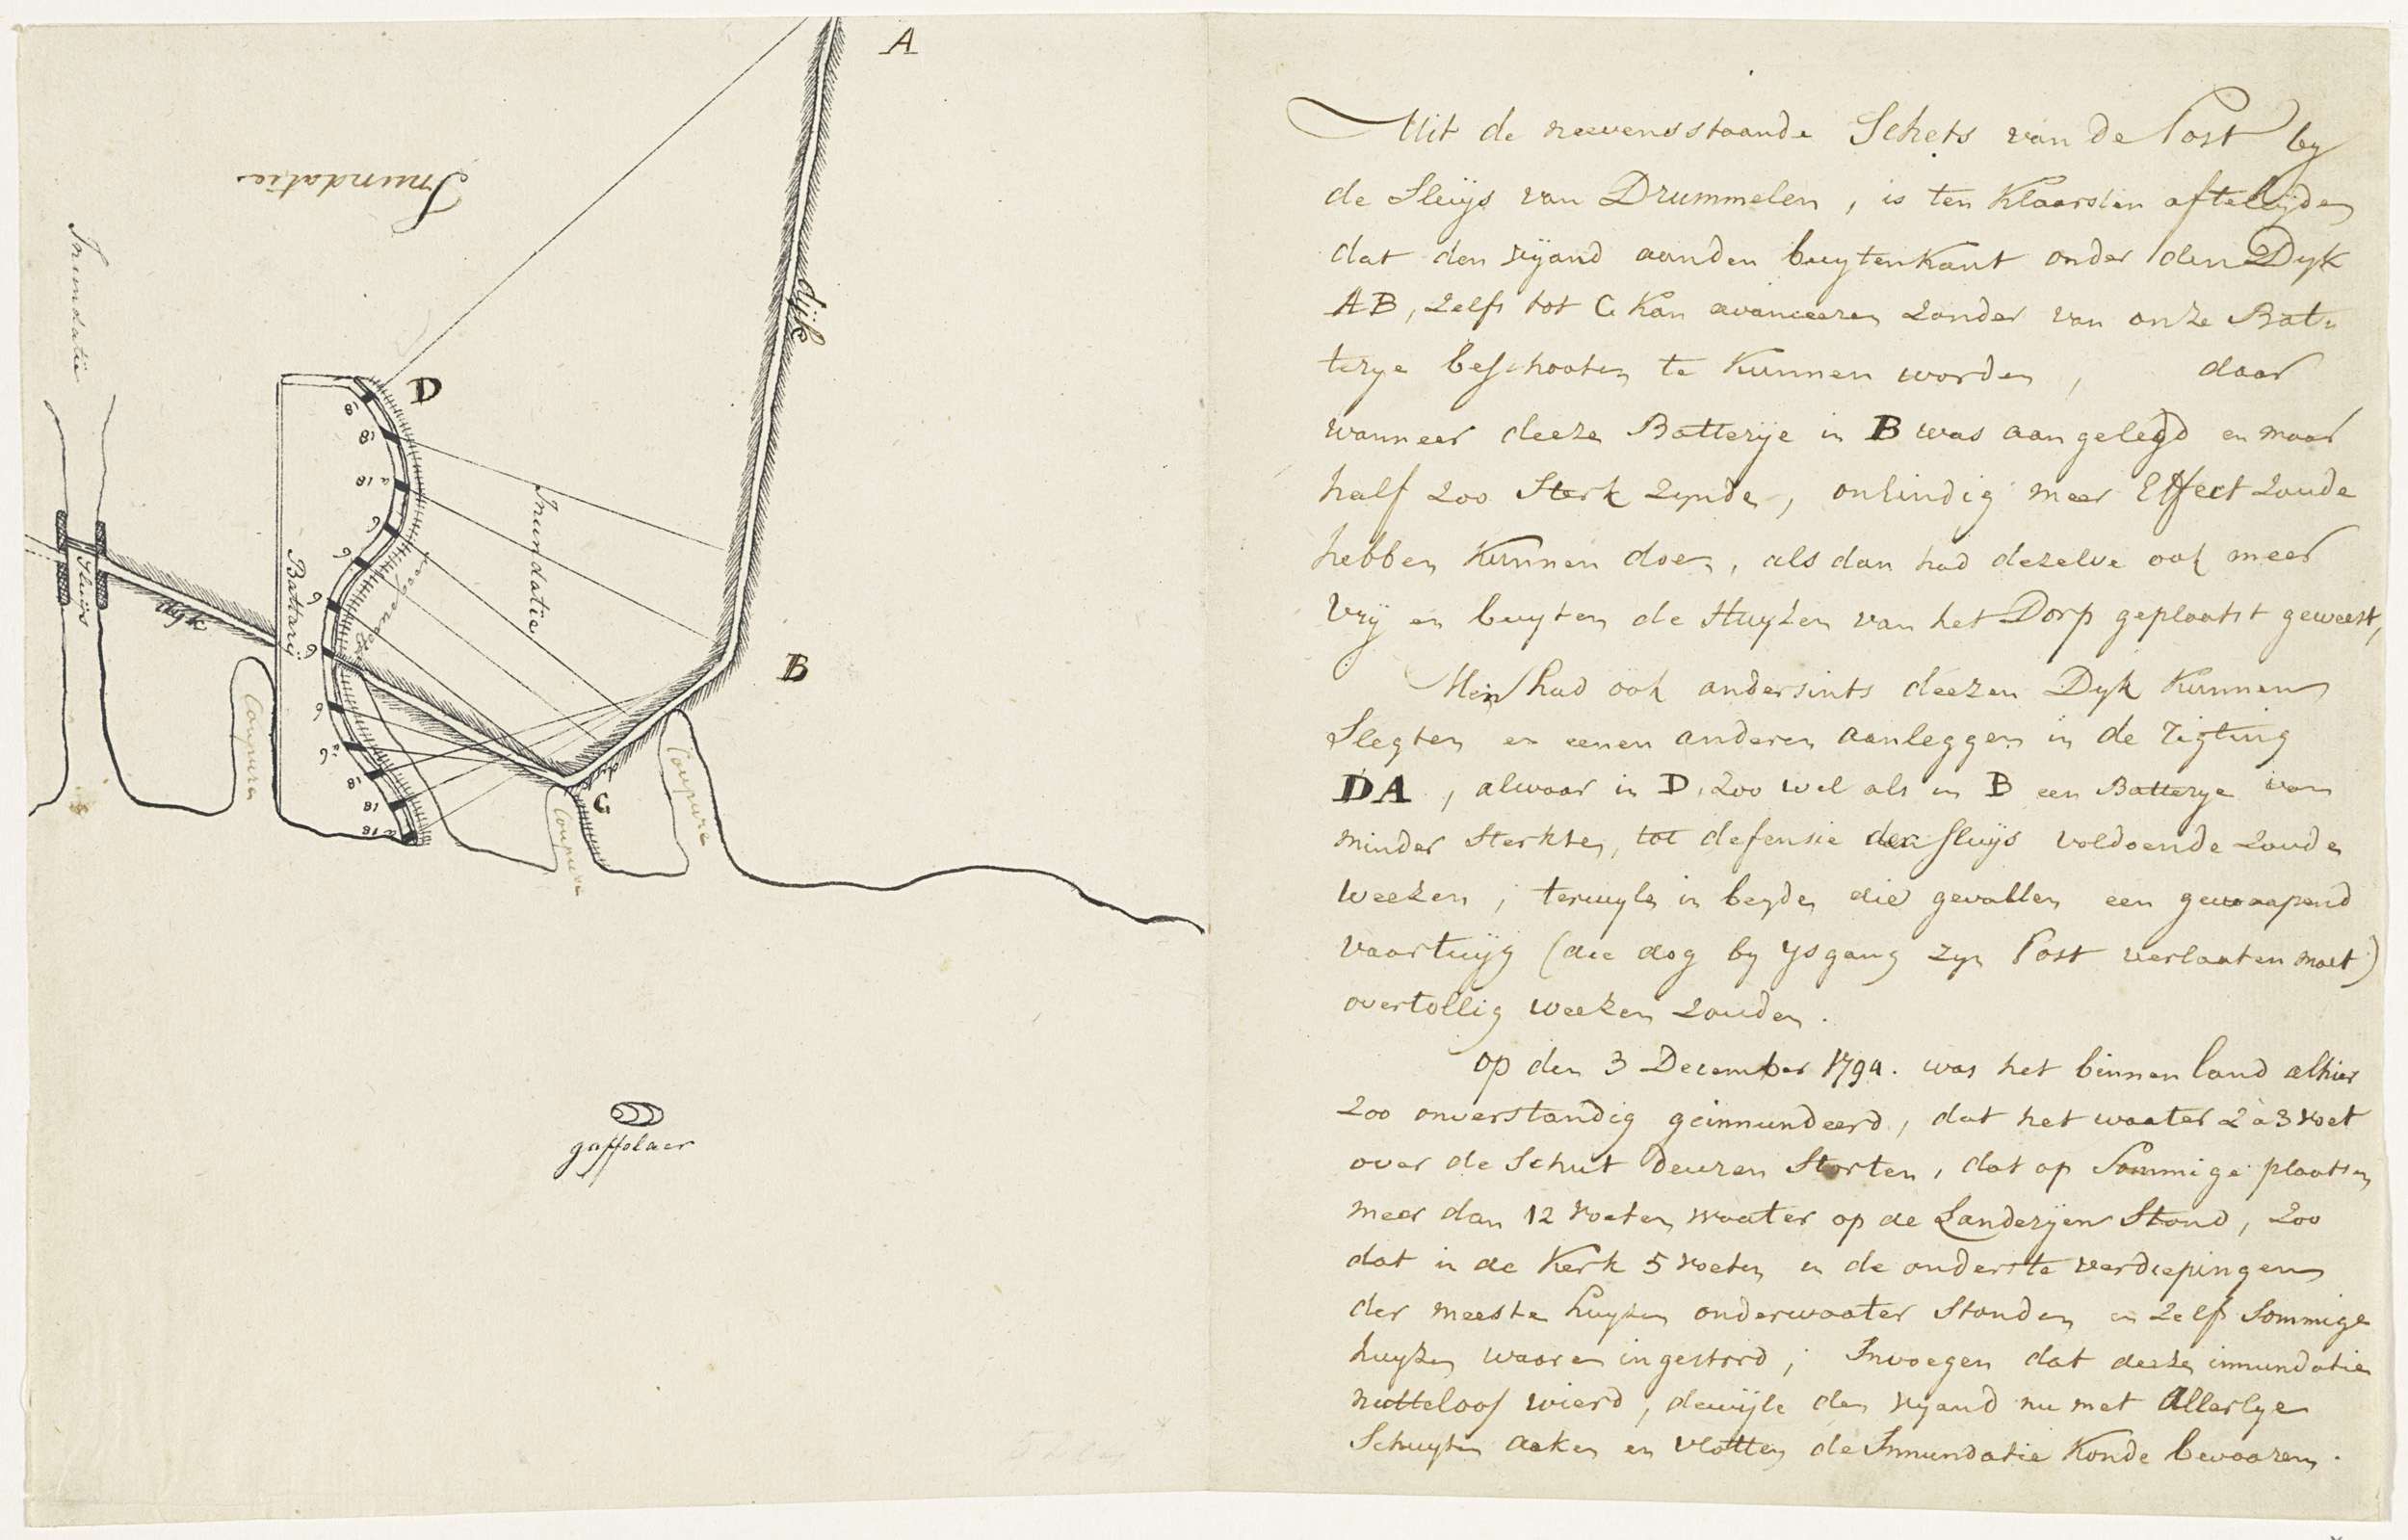 A
Inundatie
Inundatie
dijk
D
18
18
a 18
6
6
6
6
6
a 6
18
18
a 18
Inundatie
Battarij
Sluijs
dijk
B
C
Coupure
Coupure
Coupure
gaffelaer
Uit de neevensstaande Schets van de Post by
de Sluijs van Drummelen, is ten Klaarsten afteleijden
dat den vijand aanden buytenkant onder den Dyk
AB, zelfs tot C kan avanceeren zonder van onze Bat=
terye beschooten te kunnen worden, daar
wanneer deeze Batterije in B was aangelegd en maar
half zoo Sterk zynde, oneindig meer Effect zoude
hebben kunnen doen, als dan had dezelve ook meer
Vrij en buyten de Huyzen van het Dorp geplaatst geweest,
Men had ook andersints deezen Dyk kunnen
Slegten en eenen anderen aanleggen in de rigting
DA, alwaar in D, zoo wel als in B een Batterye van
minder Sterkte, tot defensie der Sluijs voldoende zoude
weezen, terwyle in beyde die gevallen een gewaapend
vaartuijg (die dog by ysgang zyn Post verlaaten moet)
overtollig weezen zouden.
op den 3 December 1794. was het binnenland alhier
zoo onverstandig geinnundeerd, dat het waater 2 à 3 voet
over de Schut deuren Storten, dat op Sommige plaatsen
meer dan 12 voeten waater op de Landeryen Stond, zoo
dat in de Kerk 5 voeten en de onderste verdiepingen
der meeste huyzen onderwaater Stonden en zelfs Sommige
huyzen waaren ingestord; Invoegen dat deeze innundatie
nutteloos wierd, dewijle den vyand nu met allerlye
Schuyten aaken en vlotten de Innundatie konde bevaaren.